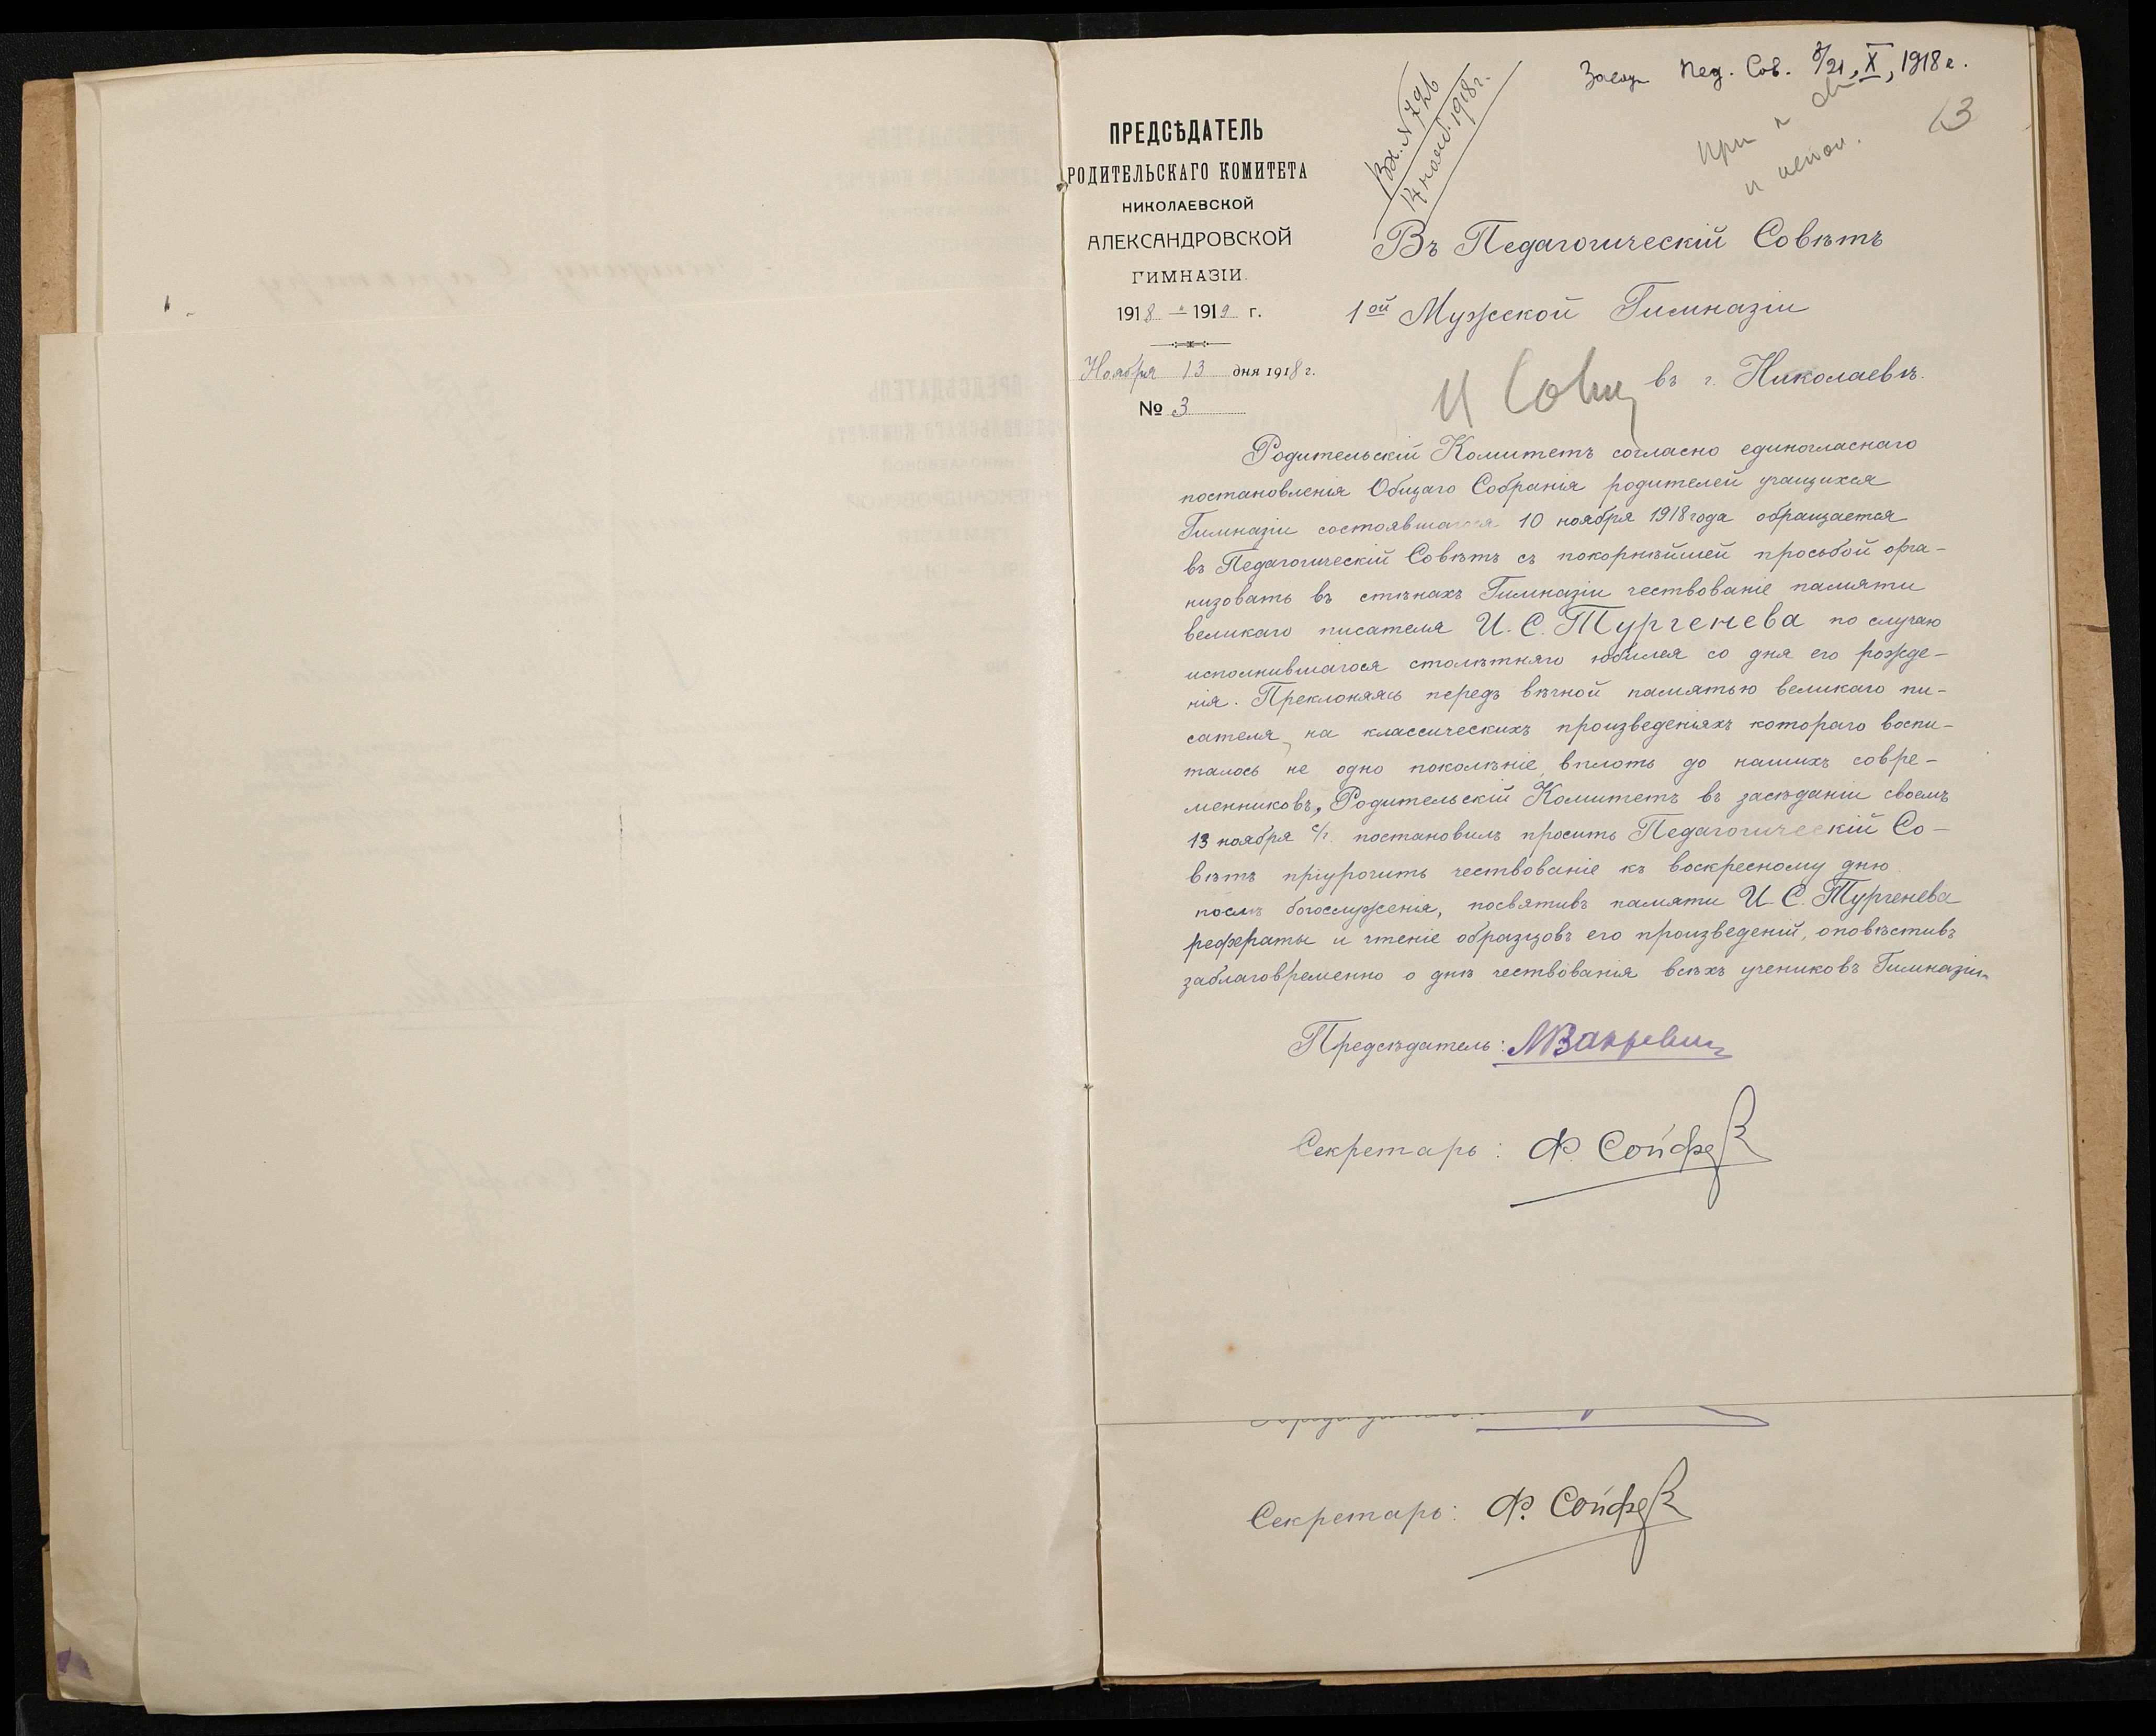 Засѣд. Пед. Сов. 8/21, X, 1918 г.
Вх. № 7926
14 нояб. 1918 г.
при
и
13
ПРЕДСѢДАТЕЛЬ
РОДИТЕЛЬСКАГО КОМИТЕТА
НИКОЛАЕВСКОЙ
АЛЕКСАНДРОВСКОЙ
ГИМНАЗІИ.
1918 – 1919 г.
Ноября 13 дня 1918 г.
№ 3
Въ Педагогическій Совѣтъ
1ой Мужской Гимназіи
въ г. Николаевѣ.
Родительскій Комитетъ согласно единогласнаго
постановленія Общаго Собранія родителей учащихся
Гимназіи состоявшагося 10 ноября 1918 года обращается
въ Педагогическій Совѣтъ съ покорнѣйшей просьбой орга-
низовать въ стѣнахъ Гимназіи чествованіе памяти
великаго писателя И. С. Тургенева по случаю
исполнившагося столѣтняго юбилея со дня его рожде-
нія. Преклоняясь передъ вѣчной памятью великаго пи-
сателя, на классическихъ произведеніяхъ котораго воспи-
талось не одно поколѣніе, вплоть до нашихъ совре-
менниковъ, Родительскій Комитетъ въ засѣданіи своемъ
13 ноября с/г. постановилъ просить Педагогическій Со-
вѣтъ пріурочить чествованіе къ воскресному дню
послѣ богослуженія, посвятивъ памяти И. С. Тургенева
рефераты и чтеніе образцовъ его произведеній, оповѣстивъ
заблаговременно о днѣ чествованія всѣхъ учениковъ Гимназіи.
Предсѣдатель:
Секретарь: Ф. Сойфер
Секретарь: Ф. Сойфер